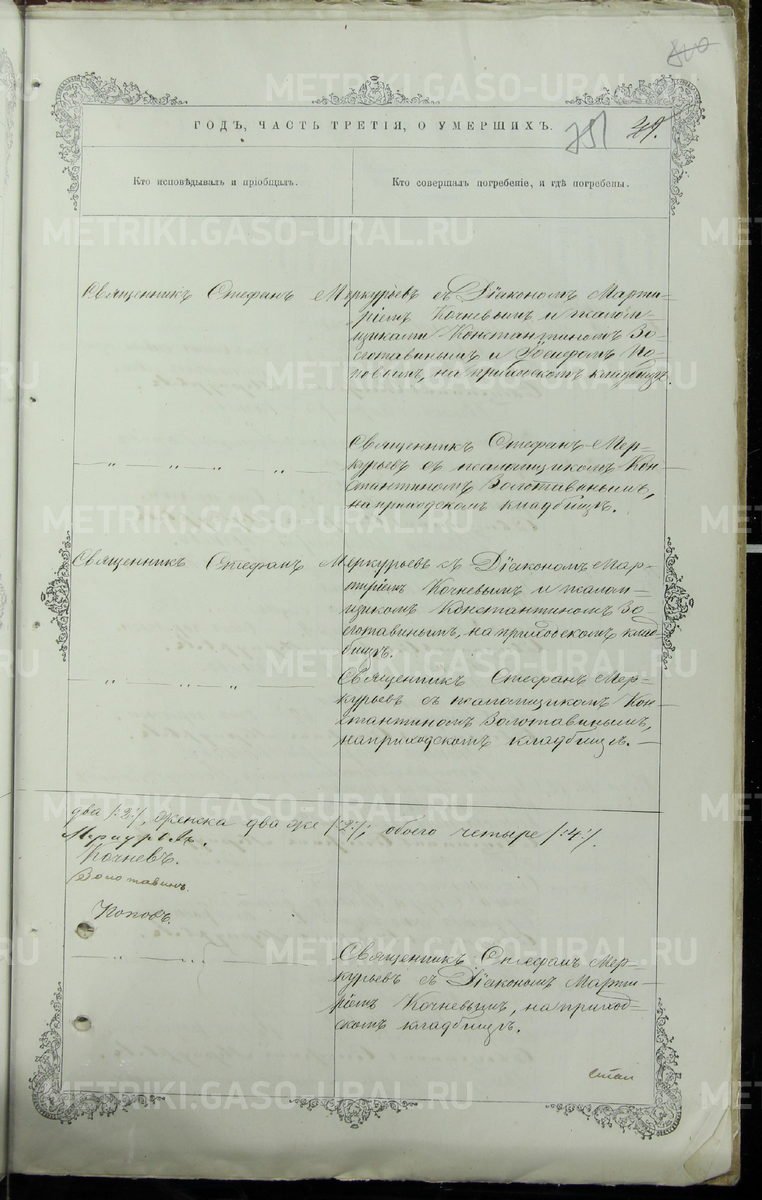 ГОДЪ, ЧАСТЬ ТРЕТІЯ, О УМЕРШИХЪ.
751
Кто исповѣдывалъ и пріобщалъ.
Кто совершалъ погребеніе, и гдѣ погребены.
Священникъ Стефанъ Меркурьевъ съ Діакономъ Марти-
ріемъ Кочневымъ и псалом-
щиками Константиномъ Зо-
лотавинымъ и Іосифомъ По-
повымъ, на приходскомъ кладбищѣ.
— „ „ „ „ —
Священникъ Стефанъ Мер-
курьевъ съ псаломщикомъ Кон-
стантиномъ Золотавинымъ,
на приходскомъ кладбищѣ.
Священникъ Стефанъ Меркурьевъ съ Діакономъ Мар-
тиріемъ Кочневымъ и псалом-
щикомъ Константиномъ Зо-
лотавинымъ, на приходскомъ клад-
бищѣ.
— „ „ .. „ —
Священникъ Стефанъ Мер-
курьевъ съ псаломщикомъ Кон-
стантиномъ Золотавинымъ,
на приходскомъ кладбищѣ. —
два /:2:/, женска два же /:2:/; обоего четыре /:4:/.
Меркурьевъ.
Кочневъ.
Золотавинъ.
Поповъ.
— „ „ ... —
Священникъ Стефанъ Мер-
курьевъ съ Діакономъ Марти-
ріемъ Кочневымъ, на приход-
скомъ кладбищѣ.
METRIKI.GASO-URAL.RU